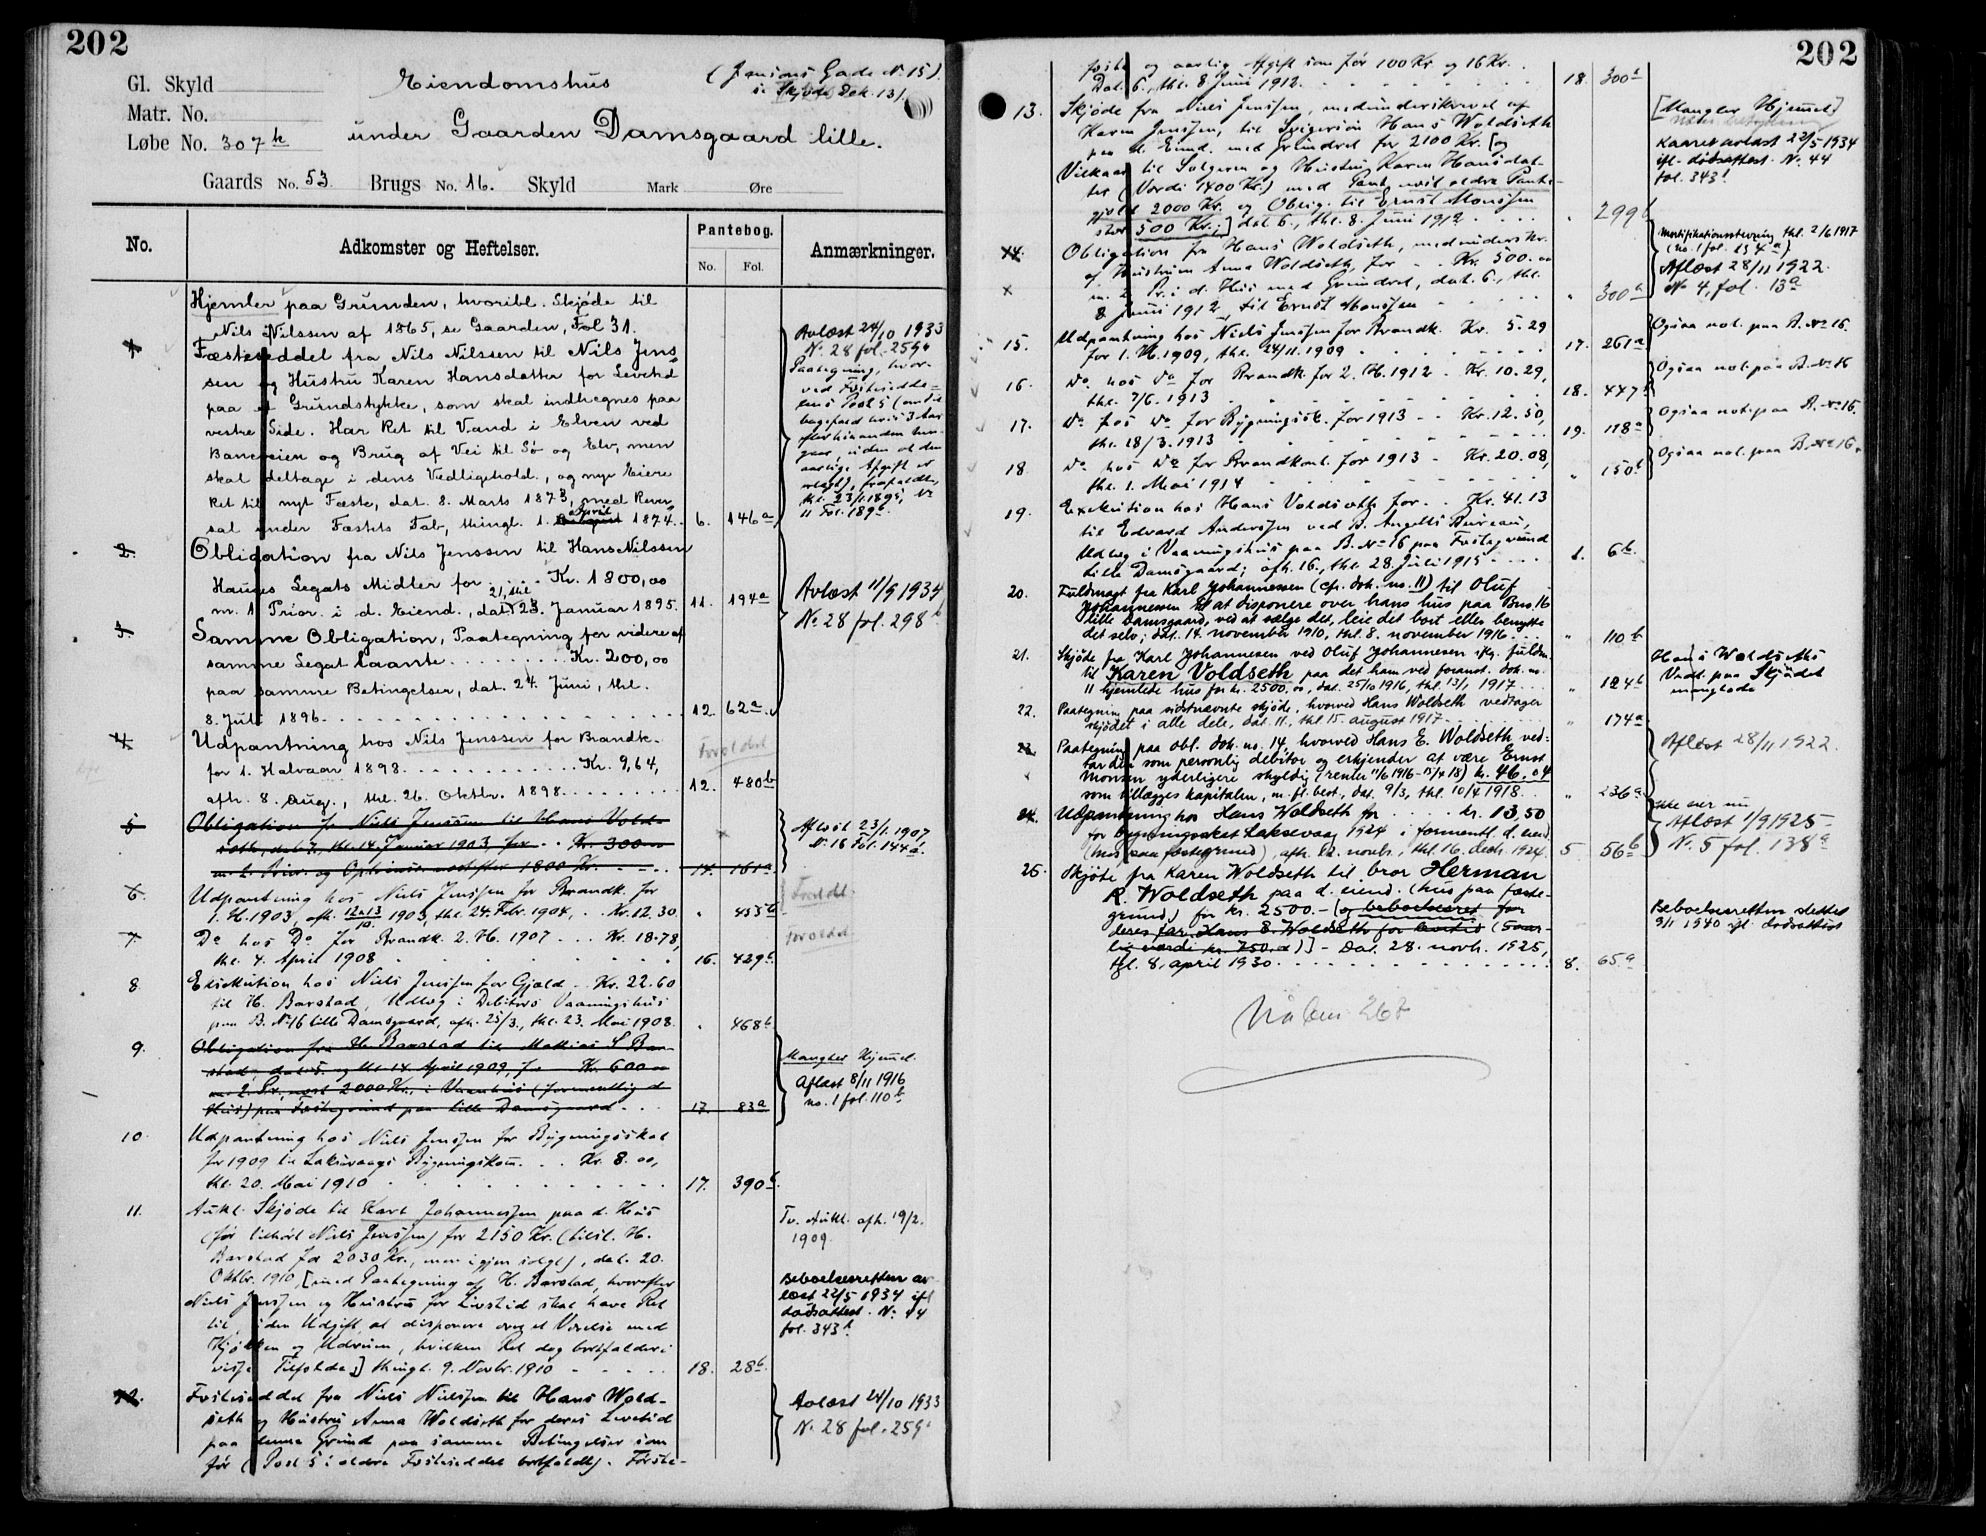 202
Gl. Skyld
Matr. No.
Løbe No. 307h
Eiendomshus
under Gaarden Damsgaard lille.
(Jensens Gade No 15)
i Skjøde Dok. 13)
Gaards No. 53. Brugs No. 16. Skyld Mark Øre
No. Adkomster og Heftelser. Pantebog. Anmærkninger.
No. Fol.
Hjemler paa Grunden, hvoribl. Skjøde til
Nils Nilssen af 1865, se Gaarden, Fol 31.
1. Fæsteseddel fra Nils Nilssen til Nils Jens
sen og Hustru Karen Hansdatter for Levetid
paa et Grundstykke, som skal indhegnes paa
vestre Side. Har Ret til Vand i Elven ved
Baneveien og Brug af Vei til Sø og Elv, men
skal deltage i dens Vedligehold., og nye Eiere
Ret til nyt Fæste, dat. 8. Marts 1873, med Rever
sal under Fæstets Tab, thingl. 1. April 1874. 6. 146a
Avlæst 24/10 1933
No 28 fol. 259a
Paategning, hvor-
ved Fæstesedde-
lens Post 5 (om Til
bagefald hvis 3 Aar
efter hinanden hen-
gaar, uden at den
aarlige Afgift er
erlagt), frafaldes,
thl. 23/1 1895, No
11 Fol. 189b.
2. Obligation fra Nils Jenssen til Hans Nilssen
Hauges Legats Midler for . . . Kr. 1800,00
m. 1 Prior. i d. Eiend., dat. 21, thl. 23. Januar 1895. 11. 194a
Avlæst 11/9 1934
No 28 fol. 298b
3. Samme Obligation, Paategning for videre af
samme Legat laante . . . . . . . . Kr. 200,00
paa samme Betingelser, dat. 24. Juni, thl.
8. Juli 1896. 12. 62a.
4. Udpantning hos Nils Jenssen for Brandk.
for 1. Halvaar 1898. . . . . . . . . Kr. 9,64,
afh. 8. Aug., thl. 26. Oktbr. 1898. 12. 480b
Foreldet
5. Obligation fr Niels Jenssen til Hans Vold-
seth, dat. 7, thl. 14 Januar 1903, for . . Kr. 300.00
m. 2. Prior. og Opt. next efter 1800 Kr. - - . . 14. 161a
Aflæst 23/1. 1907
No 16 Fol. 144a.
6. Udpantning hos Niels Jenssen for Brandk. for
1. H. 1903, afh. 12 a 13/10 1903, thl. 24. Febr. 1904, . . Kr. 12.30. " 455b
Foreldt.
7. Do hos Do for Brandk. 2. H. 1907 . . . Kr. 18.78,
thl. 4. April 1908 16. 429b
Foreldd.
8. Exekution hos Niels Jenssen for Gjæld . . Kr. 22.60
til H. Barstad, Udlæg i Debitors Vaaningshus
paa B. No 16 lille Damsgaard, afh. 25/3., thl. 23. Mai 1908. " 468b
9. Obligation fra H. Barstad til Mathias S Bar-
stad, dat. 5. og thl. 14 April 1909, for Kr. 600.00
m. 2. Pr. næst 2000 Kr., i Vaanhus (formentlig d
Hus) paa Fæstegrund paa lille Damsgaard . . . 17. 83a
Mangler Hjemmel.
Aflæst 8/11 1916
no. 1 fol. 110b.
10. Udpantning hos Niels Jenssen for Bygningsskat
for 1909 til Laksevaags Bygningskom. . . Kr. 8.00,
thl. 20. Mai 1910 17. 390b.
11. Aukt. Skjøde til Karl Johannessen paa d. Hus
(før tilhørt Niels Jenssen) for 2150 Kr. (tilsl. H.
Barstad for 2030 Kr., men igjen solgt), dat. 20.
Oktbr. 1910, [med Paategning af H. Barstad, hvorefter
Niels Jenssen og Hustru for Livstid skal have Ret
til, uden Udgift, at disponere over et Værelse med
Kjøkken og Udrum, hvilken Ret dog bortfalder i
visse Tilfælde.] thingl. 9. Novbr. 1910 18. 28b.
Tv. Aukt. afh. 19/2.
1909.
Beboelsesretten av
læst 22/5 1934 ifl
dødsattest. No 44
fol. 343b
12. Fæsteseddel fra Niels Nielssen til Hans Wold-
seth og Hustru Anna Woldseth for deres Levetid
paa denne Grund paa samme Betingelser som
før (Post 5 i ældre Fæsteseddel bortfaldt). Første-
Avlæst 24/10 1933
No 28 fol. 259a
202
fæste og aarlig Afgift som før 100 Kr. og 16 Kr.
Dat. 6., thl. 8 Juni 1912. 18. 300a
13. Skjøde fra Niels Jenssen, medunderskrevet af
Karen Jenssen, til Svigersøn Hans Woldseth
paa d. Eiend. med Grundret for 2100 Kr. [og
Vilkaar til Sælgeren og Hustru Karen Hansdat-
ter (Værdi 1400 Kr.) med Pant, næst ældre Pante-
gjæld 2000 Kr. og Oblig. til Ernst Monssen
stor 500 Kr.;] dat. 6., thl. 8. Juni 1912 . . . . " 299b
[Mangler Hjemmel]
Kaaret avlæst 22/5 1934
ifl. dødsattest. No. 44
fol. 343b
14. Obligation fra Hans Woldseth, medunderskr.
af Hustruen Anna Woldseth, for - . Kr. 500.00
m. 2. Pr. i d. Hus med Grundret, dat. 6., thl.
8 Juni 1912, til Ernst Monssen " 300a
Mortifikationsstevning thl. 2/6 1917
(No. 1 fol. 154a)
Aflæst 28/11 1922.
No 4, fol. 13a
15. Udpantning hos Niels Jenssen for Brandk. Kr. 5.29
for 1. H. 1909, thl. 24/11. 1909 17. 261a
Ogsaa not. paa B. No 16.
16. Do hos Do for Brandk. for 2. H. 1912 - Kr. 10.29,
thl. 7/6. 1913 18. 447b
Ogsaa not. paa B. No 16
17. Do hos Do for Bygningssk. for 1913 - - Kr. 12.50,
thl. 18/3. 1913 19. 118a
Ogsaa not. paa B. No 16.
18. Do hos Do for Brandkont. for 1913 - Kr. 20.08,
thl. 1. Mai 1914 " 150b
Ogsaa not. paa B. No 16.
19. Exekution hos Hans Voldseth for . . Kr. 41.13
til Edvard Anderssen ved B. Angells Bureau,
Udlæg i Vaaningshus paa B. No 16 paa Fæstegrund
lille Damsgaard; afh. 16., thl. 28. Juli 1915 . . . . 1. 6b.
20. Fuldmagt fra Karl Johannessen (cfr. dok. no. 11) til Oluf
Johannessen til at disponere over hans hus paa Bno. 16
lille Damsgaard, ved at sælge det, leie det bort eller benytte
det selv; dat. 14. november 1910, thl. 8. november 1916 . . . " 110b
21. Skjøde fra Karl Johannesen ved Oluf Johannesen iflg. fuldm.
til Karen Voldseth paa det ham ved foranst. dok. no.
11 hjemlede hus for kr. 2500,00, dat. 25/10 1916, thl. 13/1 1917 . . . " 124b
Hans Woldseths
Vedt. paa Skjødet
manglede
22. Paategning paa sidstnævnte skjøde, hvorved Hans Woldseth vedtager
skjødet i alle dele, dat. 11., thl. 15. august 1917 " 174a
23. Paategning paa obl. dok. no. 14, hvorved Hans E. Woldseth ved:
tar den som personlig debitor og erkjender at være Ernst
Monsen yderligere skyldig (renter 11/6 1916 - 13/4 18) kr. 46,04
som tillægges kapitalen, m. fl. best., dat. 9/3, thl. 10/4 1918. . . " 236a
Aflæst 28/11 1922.
24. Udpantning hos Hans Woldseth for . . . . kr. 13,50
for bygningsskat Laksevaag 1924 i formentl. d. eiend.
(hus paa fæstegrund), afh. 12. novbr., thl. 16. decbr. 1924. 5. 56b
Aflæst 11/9 1925
No. 5 fol. 138a
25. Skjøte fra Karen Woldseth til bror Herman
R. Woldseth paa d. eiend. (hus paa fæste-
grund) for kr. 2500.- [og beboelsesret for
deres far Hans E. Woldseth for livstid (5 aar-
lig værdi kr. 750.-)] - Dat. 28. novb. 1925,
thl. 8. april 1930. 8. 65a
Beboelsesretten slettet
9/11 1940 ifl. dødsattest